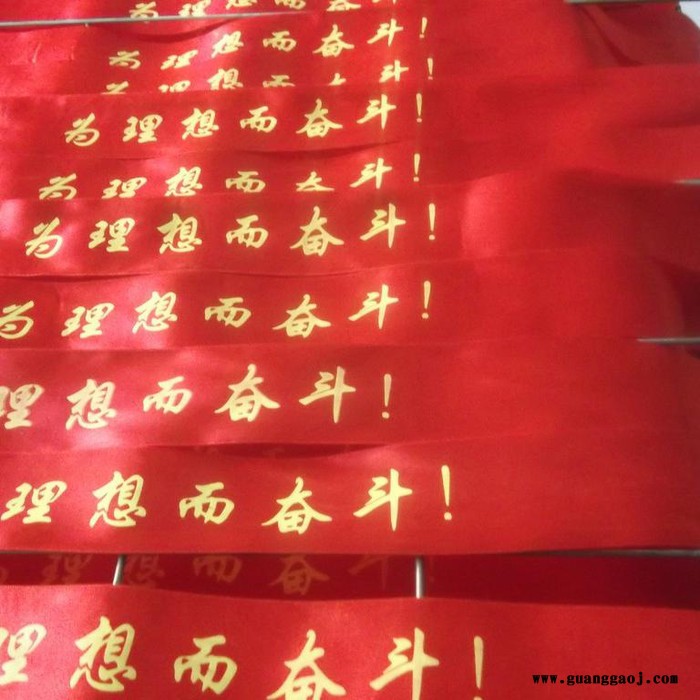 为理想而奋斗!
为理想而奋斗!
为理想而奋斗!
为理想而奋斗!
为理想而奋斗!
为理想而奋斗!
为理想而奋斗!
理想而奋斗!
理想而奋斗!
为理想而奋
理想而奋斗!
www.guanggaoj.com